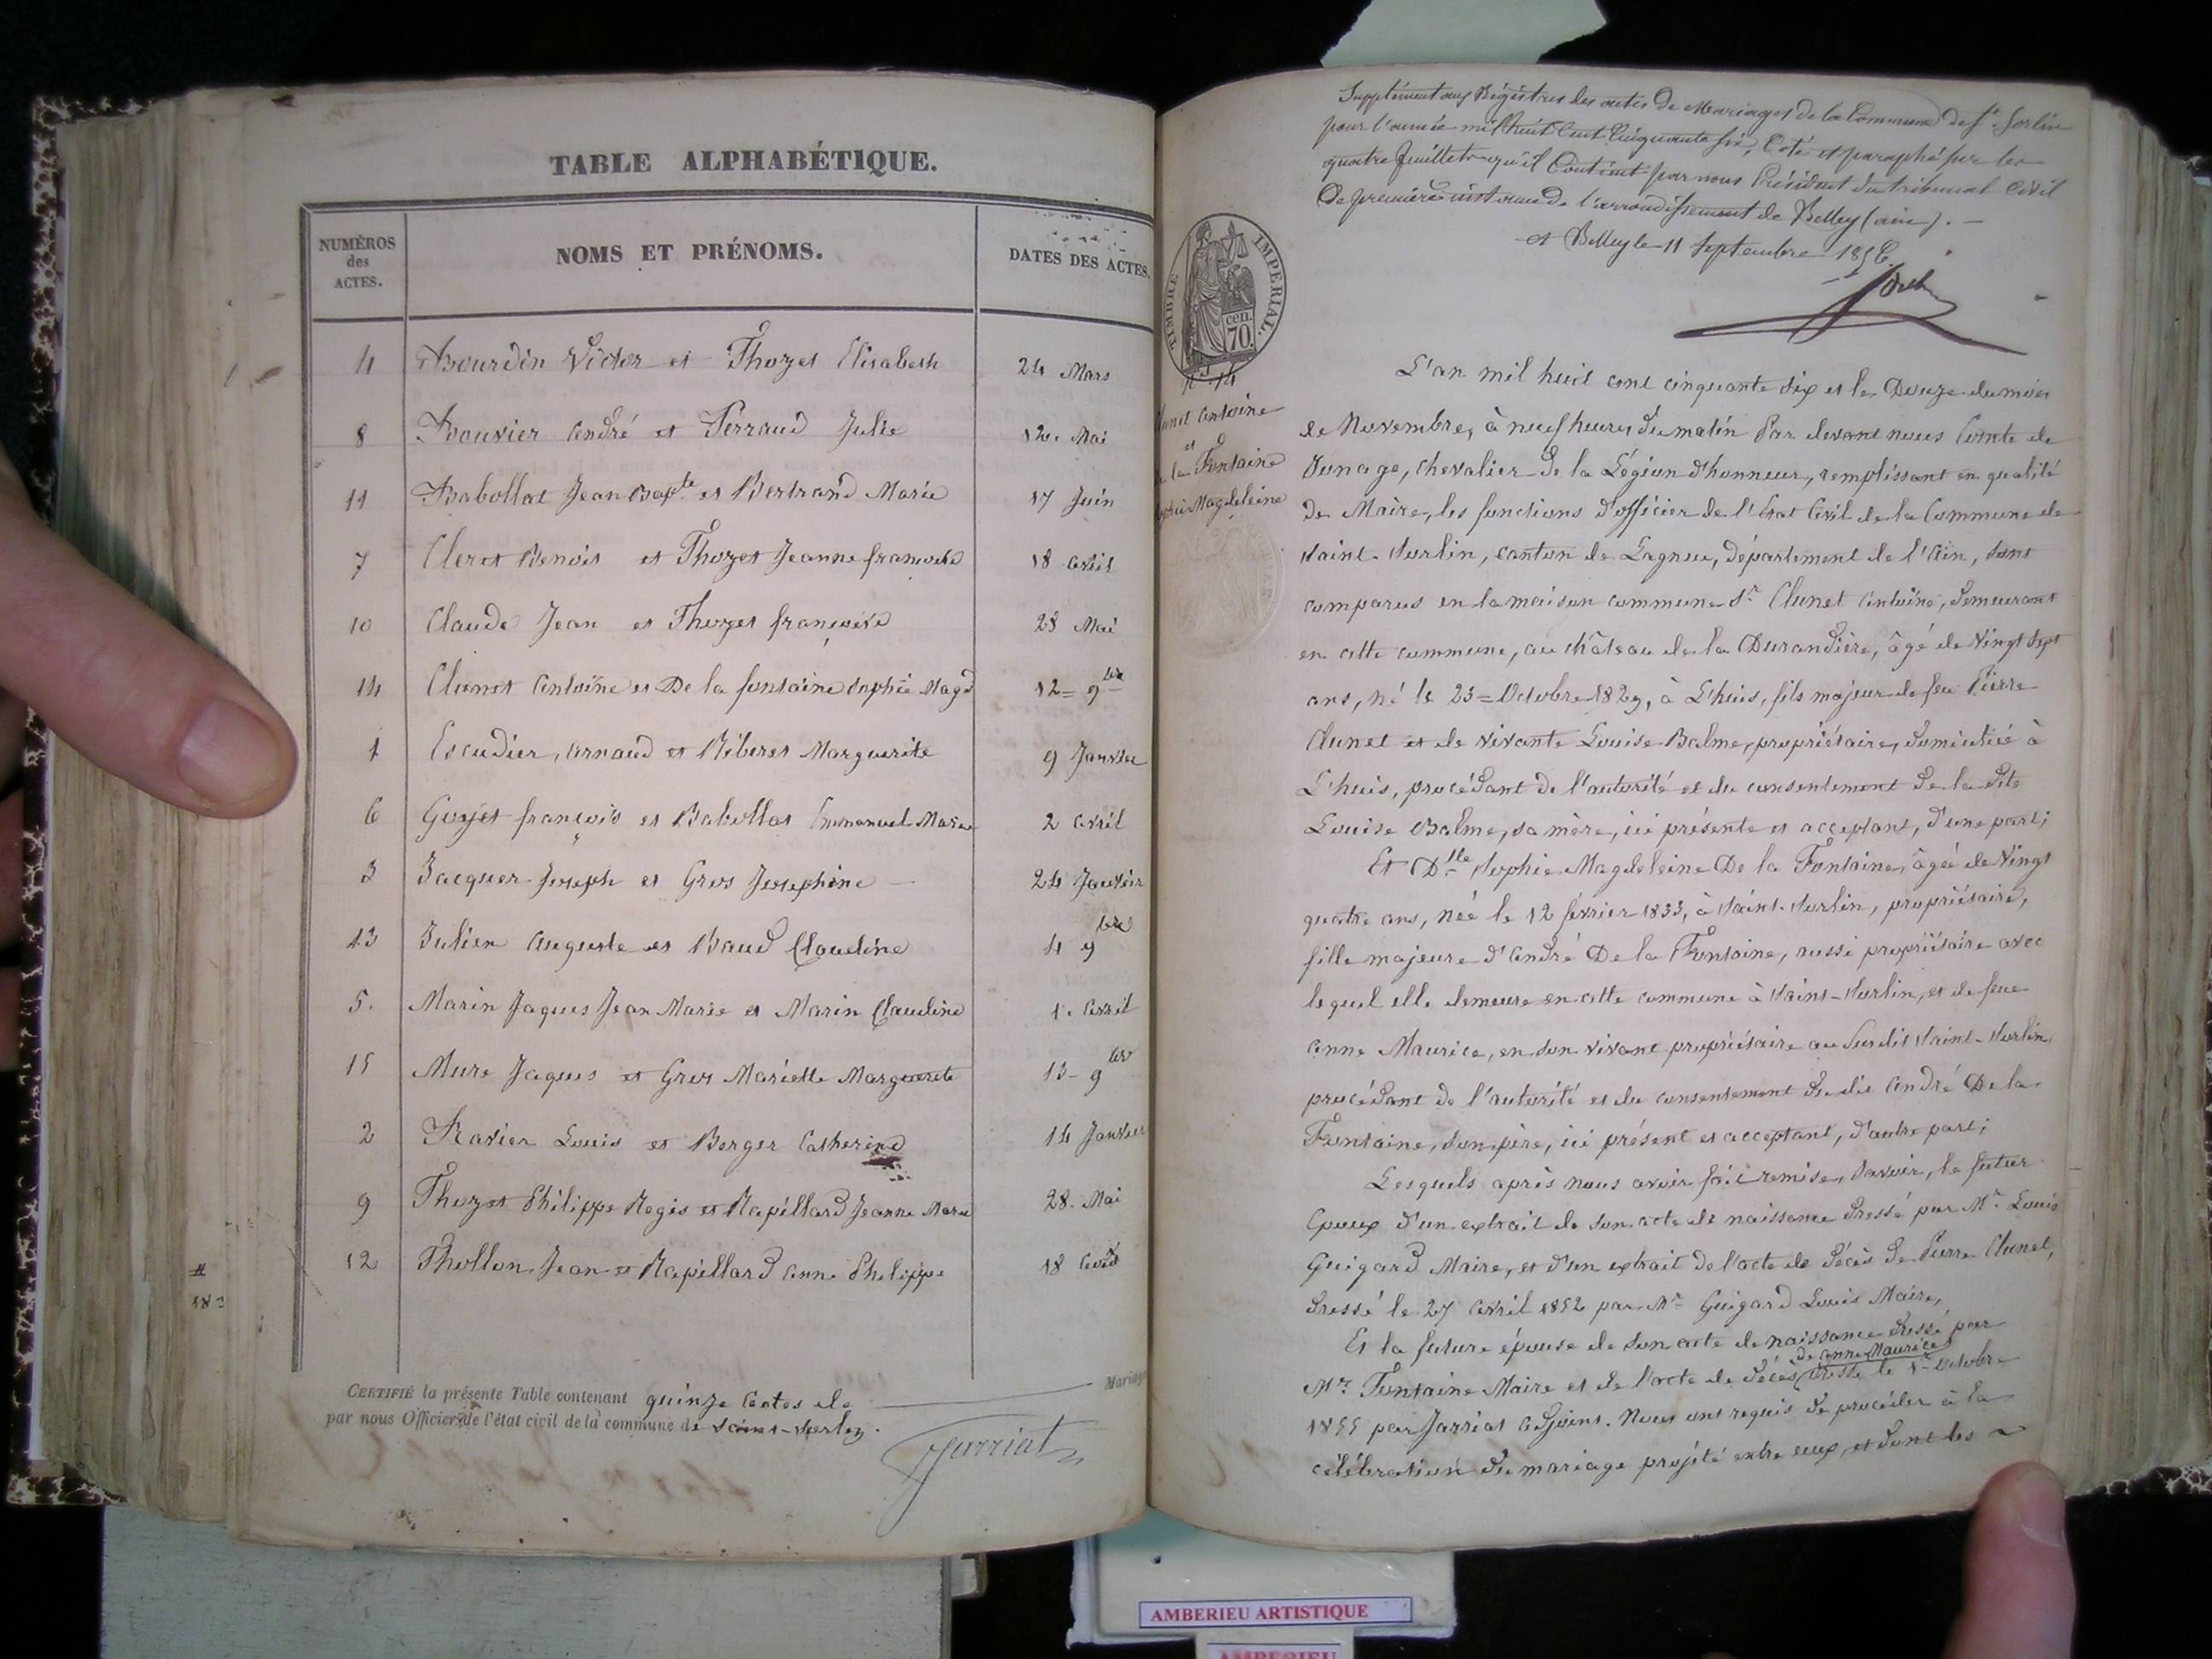 TABLE ALPHABÉTIQUE.
NUMÉROS des ACTES. NOMS ET PRÉNOMS. DATES DES ACTES.
4 Bourdin Victor et Thozet Elisabeth 24 Mars
8 Bouvier André et Perraud Julie 12. Mai
11 Babollat Jean Bapte et Bertrand Marie 17 Juin
7 Cleret Benoit et Thozet Jeanne françoise 18 Avril
10 Claude Jean et Thozet françoise 28 Mai
14 Clunet Antoine et De la fontaine Sophie Magd 12 = 9bre
1 Escudier, Arnaud et Riberet Marguerite 9 Janvier
6 Goyet françois et Babollat Emmanuel Marie 2 Avril
3 Jacquer Joseph et Gros Josephine 24 Janvier
13 Julien Auguste et Baud Claudine 4 9bre
5. Marin Jaques Jean Marie et Marin Claudine 1. Avril
15 Mure Jaques et Gros Mariette Marguerite 13 - 9bre
2 Ravier Louis et Berger Catherine 14 Janvier
9 Thozet Philippe Regis et Rapillard Jeanne Marie 28. Mai
12 Thollon Jean et Rapillard Anne Philippe 18
CERTIFIÉ la présente Table contenant quinze Actes de Mariag
par nous Officier de l'état civil de la commune de Saint-Sorlin.
Jarriat
Supplément aux Régistres des actes de Mariages de la Commune de St. Sorlin
pour l'année mil huit Cent Cinquante six, Coté et paraphé sur les
quatre feuillets qu'il Contient par nous Président du tribunal Civil
De première instance de l'arrondissement de Belley (ain). —
à Belley le 11 Septembre 1856.
TIMBRE IMPERIAL.
cen. 70.
No. 14
lunet Antoine
et
la Fontaine
phie Magdeleine
L'an mil huit cent cinquante six et le Douze du mois
de Novembre, à neuf heures du matin Par devant nous Comte de
Junage, chevalier de la Légion d'honneur, remplissant en qualité
de Maire, les fonctions d'officier de l'Etat Civil de la Commune de
Saint-Sorlin, canton de Lagnieu, département de l'Ain, sont
comparus en la maison commune Sr. Clunet Antoine, demeurant
en cette commune, au château de la Durandière, âgé de Vingt Sept
ans, né le 23 = Octobre 1829, à L'huis, fils majeur de feu Pierre
Clunet et de vivante Louise Balme, propriétaire, domicilié à
L'huis, procédant de l'autorité et du consentement de la dite
Louise Balme, sa mère, ici présente et acceptant, d'une part;
Et Dlle Sophie Magdeleine De la Fontaine, âgée de Vingt
quatre ans, née le 12 février 1833, à Saint-Sorlin, propriétaire,
fille majeure d'André De la Fontaine, aussi propriétaire avec
lequel elle demeure en cette commune à Saint-Sorlin, et de feue
Anne Maurice, en son vivant propriétaire au susdit Saint-Sorlin
procédant de l'autorité et du consentement du dit André De la
Fontaine, son père, ici présent et acceptant, d'autre part;
Lesquels après nous avoir fait remise, savoir, le futur
époux d'un extrait de son acte de naissance dressé par Mr. Louis
Guigard Maire, et d'un extrait de l'acte de décès de Pierre Clunet,
dressé le 27 Avril 1852 par Mr Guigard Louis Maire,
Et la future épouse de son acte de naissance dressé par
de Anne Maurice
Mr. Fontaine Maire et de l'acte de décès dressé le 1er Octobre
1855 par Jarriat adjoint. Nous ont requis de procéder à la
célébration du mariage projeté entre eux, et dont les
AMBERIEU ARTISTIQUE
AMBERIEU